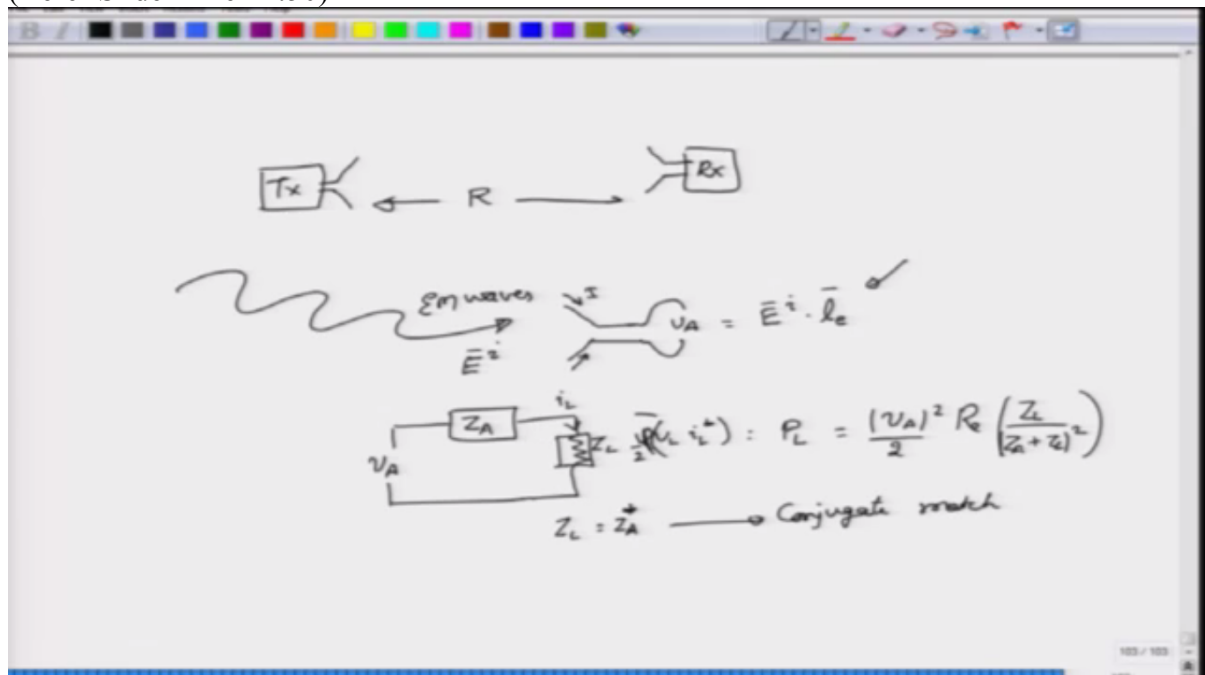 Tx R Rx
EM waves I
Ēⁱ v_A = Ēⁱ · l̄_e
Z_A i_L
v_A Z_L (v_L i_L*) : P_L = (v_A)² / 2 Re ( Z_L / |Z_A + Z_L|² )
Z_L = Z_A* → Conjugate match
103 / 103